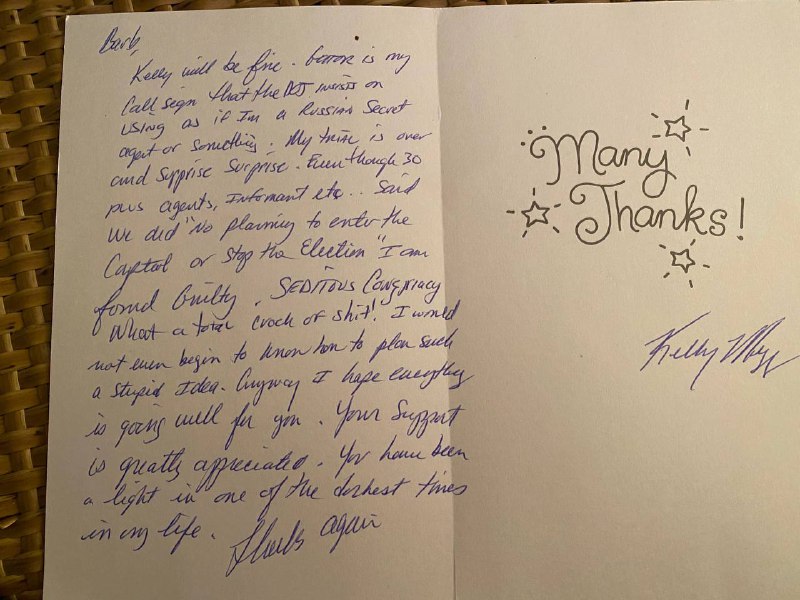 Barb,
Kelly will be fine. Gator is my
Call sign that the DOJ insists on
using as if I'm a Russian Secret
agent or something. My trial is over
and Supprise Surprise. Even though 30
plus agents, Informant etc.. Said
We did "No planning to enter the
Capital or Stop the Election" I am
found Guilty. SEDITIOUS Conspiracy
What a total Crock of shit! I would
not even begin to know how to plan such
a stupid Idea. Anyway I hope everything
is going well for you. Your Support
is greatly appreciated. You have been
a light in one of the darkest times
in my life. Thanks again
Many
Thanks!
Kelly